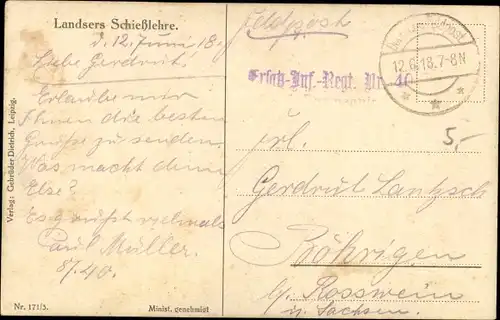 Landsers Schießlehre.
d. 12. Juni 18.
Liebe Gerdrut.
Erlaube mir
Ihnen die besten
Grüße zu senden.
Was macht denn
Else?
Es grüßt vielmals
Paul Müller.
8/40.
Feldpost
12.6.18.7-8N
Ersatz-Inf.-Regt. Nr. 40
5,-
Frl.
Gerdrut Lantzsch
Böhrigen
b/ Rosswein
i. Sachsen
Verlag: Gebrüder Dietrich, Leipzig.
Nr. 171/5.
Minist. genehmigt